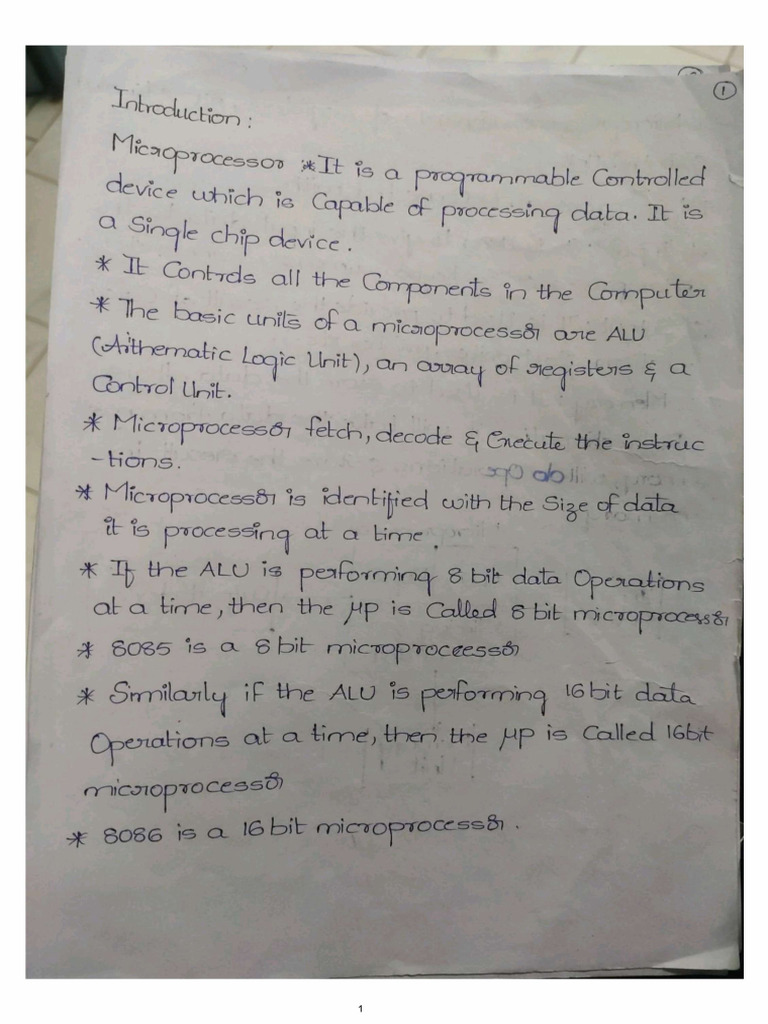 1
Introduction:
Microprocessor *It is a programmable Controlled
device which is Capable of processing data. It is
a Single chip device.
* It Controls all the Components in the Computer
* The basic units of a microprocessor are ALU
(Arithematic Logic Unit), an array of registers & a
Control Unit.
* Microprocessor fetch, decode & Execute the instruc
-tions.
* Microprocessor is identified with the Size of data
it is processing at a time.
* If the ALU is performing 8 bit data Operations
at a time, then the μp is Called 8 bit microprocessor
* 8085 is a 8 bit microprocessor
* Similarly if the ALU is performing 16 bit data
Operations at a time, then the μp is Called 16bit
microprocessor
* 8086 is a 16 bit microprocessor.
1